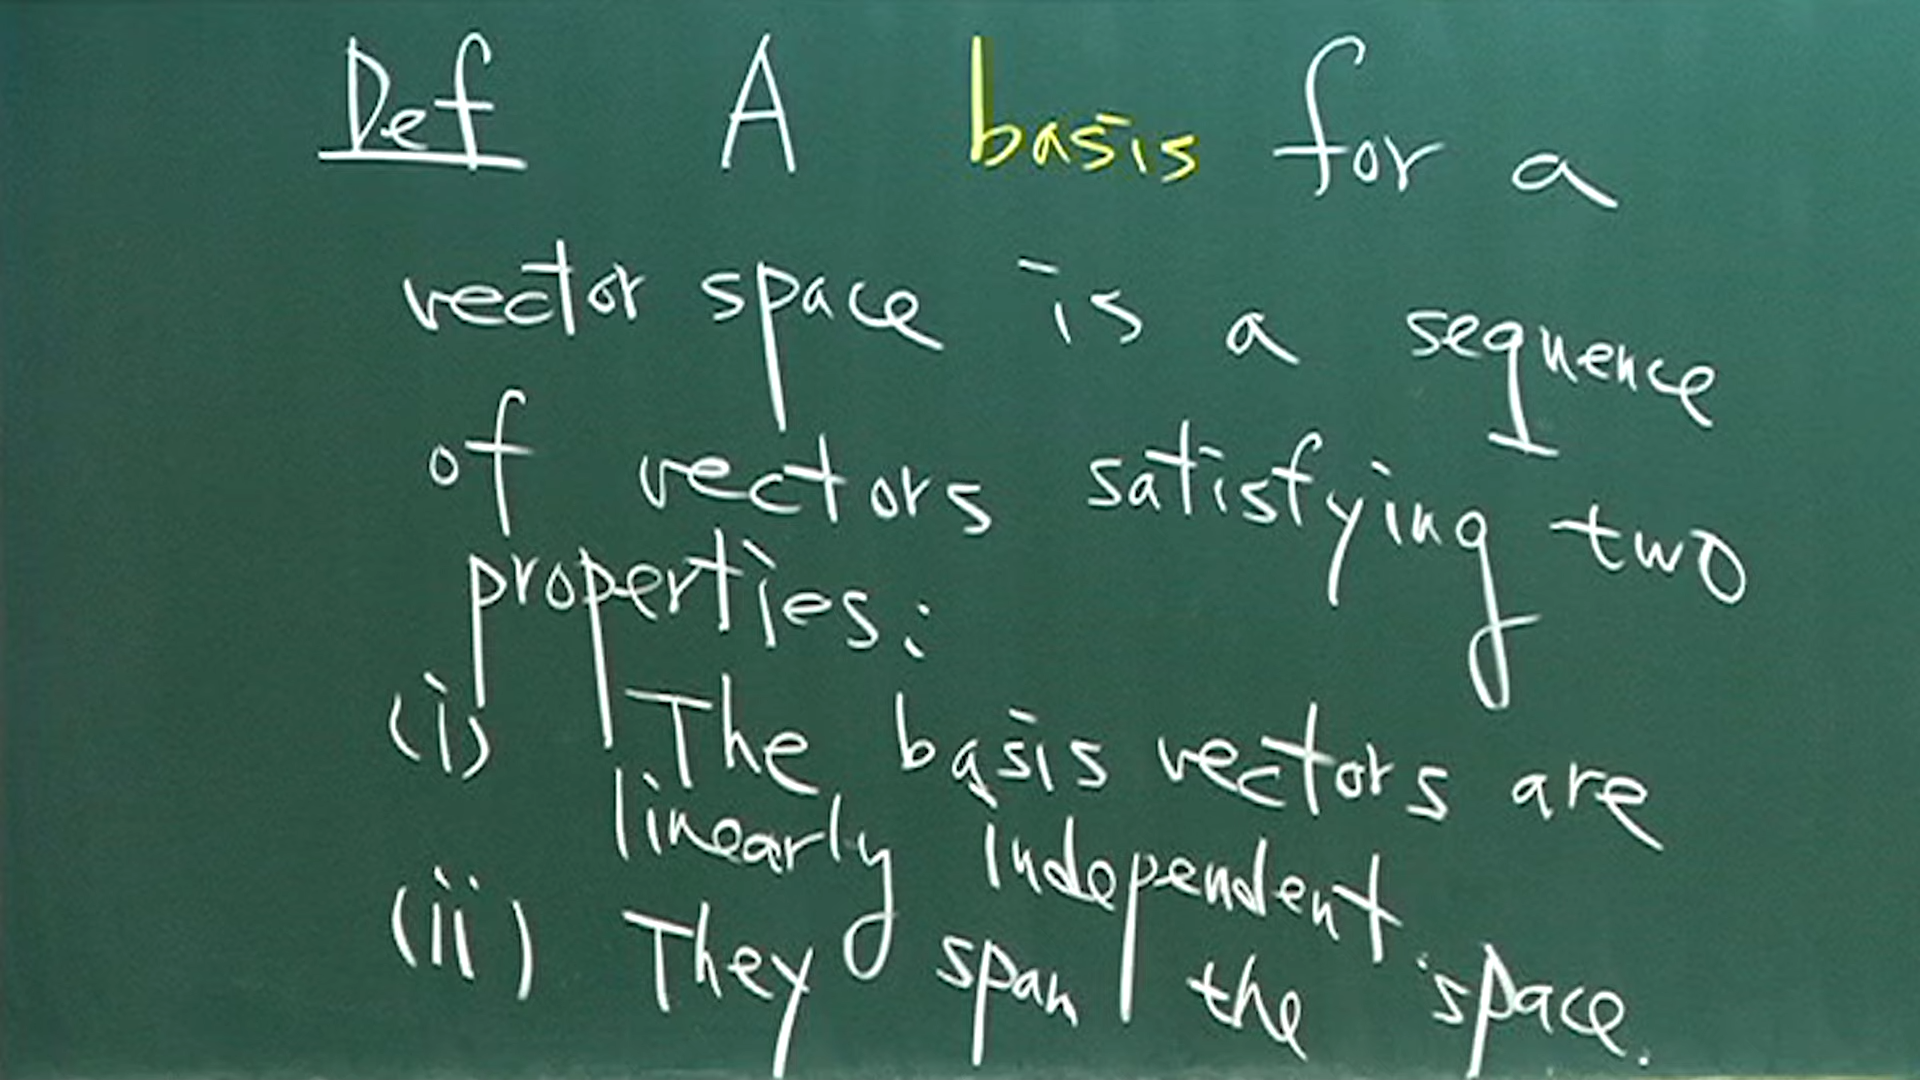 Def A basis for a
vector space is a sequence
of vectors satisfying two
properties:
(i) The basis vectors are
linearly independent.
(ii) They span the space.